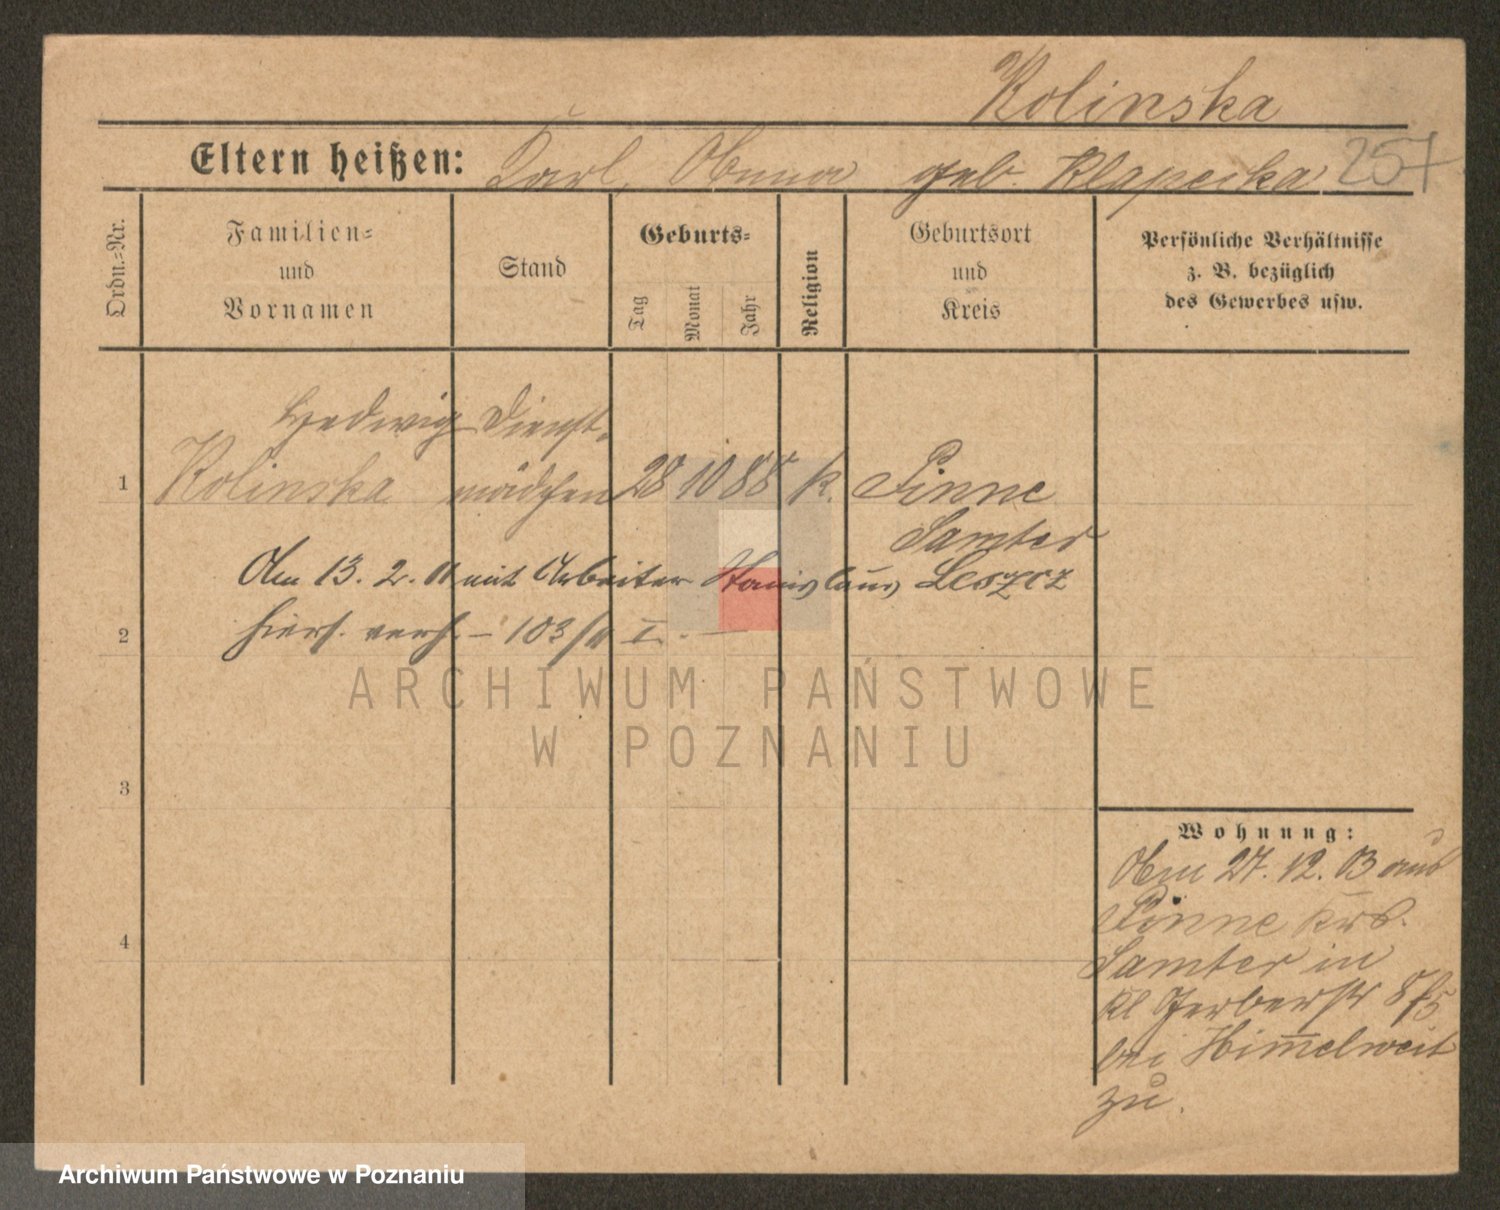 Kolinska
Eltern heißen: Karl, Anna geb. Klapecka 257
Ordn.-Nr.
Familien-
und
Vornamen
Stand
Geburts-
Tag
Monat
Jahr
Religion
Geburtsort
und
Kreis
Persönliche Verhältnisse
z. B. bezüglich
des Gewerbes usw.
Hedwig Dienst-
1 Kolinska mädchen 28 10 88 k. Pinne
Samter
Am 13. 2. 11 mit Arbeiter Stanislaus Leszcz
2 hiers. verh. – 103/11 I. –
ARCHIWUM PAŃSTWOWE
W POZNANIU
3
4
Wohnung:
Am 27. 12. 03 aus
Pinne Krs.
Samter in
Kl Gerberstr 8/5
bei Him̅elweit
zu.
Archiwum Państwowe w Poznaniu